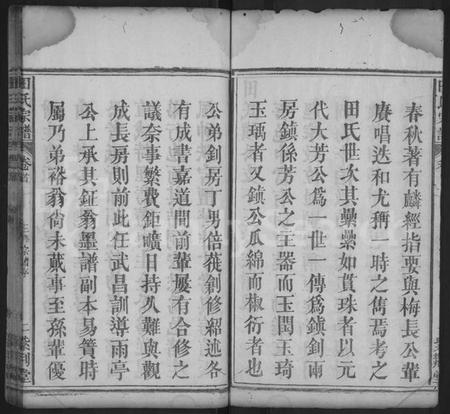 春秋著有麟經指要與梅長公輩
賡唱迭和尤稱一時之雋焉考之
田氏世次其纍纍如貫珠者以元
代大芳公爲一世一傳爲鎮釗兩
房鎮係芳公之主器而玉閏玉琦
玉瑀者又鎮公瓜綿而椒衍者也
公弟釗房丁男倍蓰創修紹述各
有成書嘉道間前輩屢有合修之
議奈事繁費鉅曠日持久難與觀
成長房則前此任武昌訓導雨亭
公上承其鉦翁墨譜副本易簀時
屬乃弟裕翁尙未蕆事至孫輩優
田氏宗譜
卷首
紫荆堂